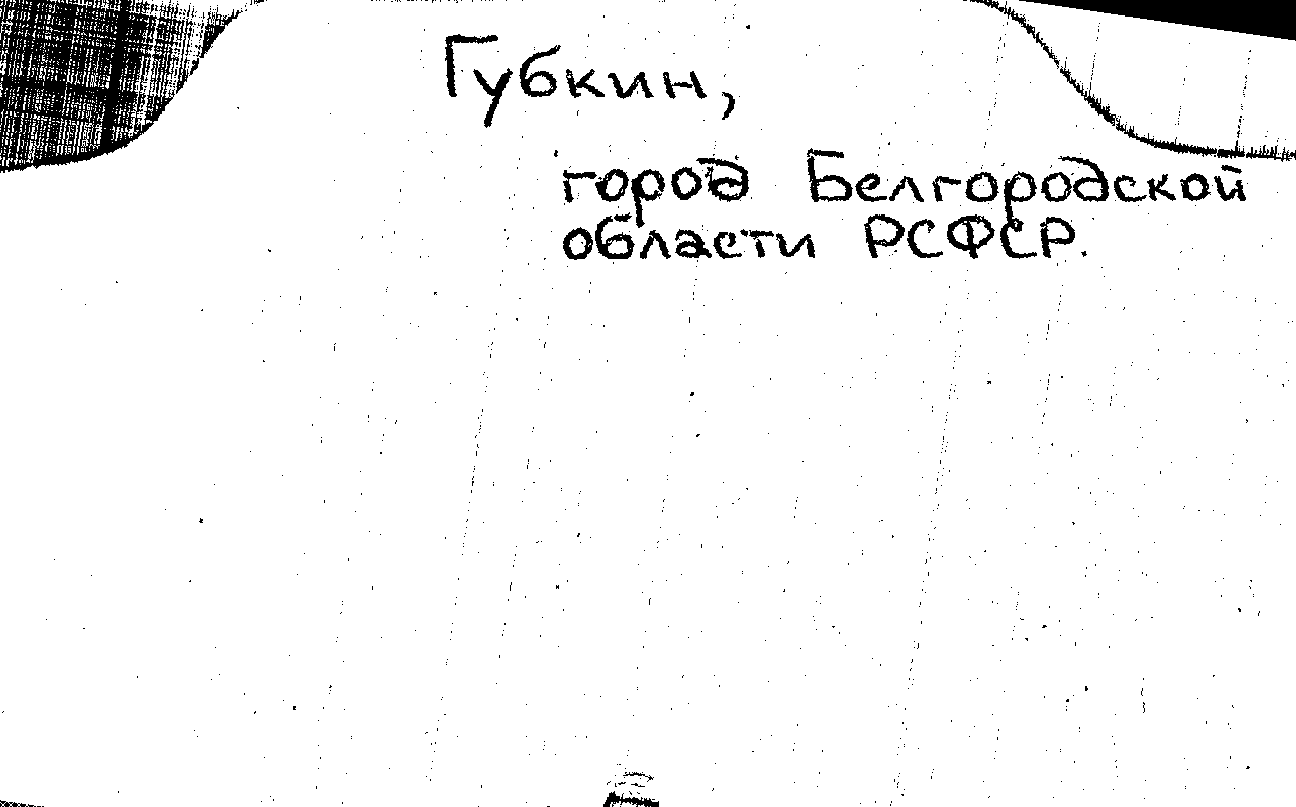 Губкин,
город Белгородской
области РСФСР.